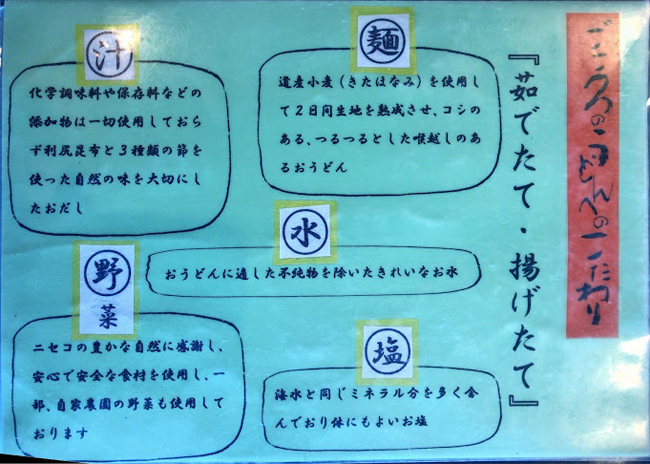 ごころのうどんへのこだわり
『茹でたて・揚げたて』
麺
道産小麦(きたほなみ)を使用し
て2日間生地を熟成させ、コシの
ある、つるつるとした喉越しのあ
るおうどん
汁
化学調味料や保存料などの
添加物は一切使用しておら
ず利尻昆布と3種類の節を
使った自然の味を大切にし
たおだし
水
おうどんに適した不純物を除いたきれいなお水
野
菜
ニセコの豊かな自然に感謝し、
安心で安全な食材を使用し、一
部、自家農園の野菜も使用して
おります
塩
海水と同じミネラル分を多く含
んでおり体にもよいお塩